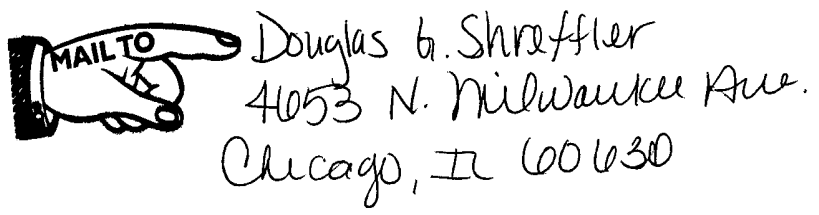 MAIL TO
Douglas G. Shreffler
4653 N. Milwaukee Ave.
Chicago, IL 60630